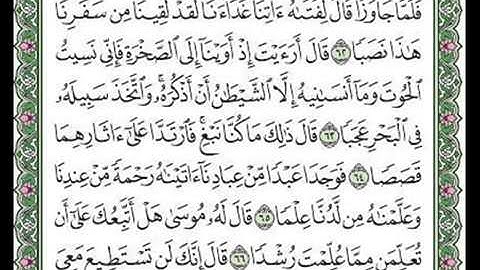 فَلَمَّا جَاوَزَا قَالَ لِفَتَىٰهُ ءَاتِنَا غَدَآءَنَا لَقَدْ لَقِينَا مِن سَفَرِنَا
هَٰذَا نَصَبًا ٦٢ قَالَ أَرَءَيْتَ إِذْ أَوَيْنَآ إِلَى ٱلصَّخْرَةِ فَإِنِّى نَسِيتُ
ٱلْحُوتَ وَمَآ أَنسَىٰنِيهُ إِلَّا ٱلشَّيْطَٰنُ أَنْ أَذْكُرَهُۥ ۚ وَٱتَّخَذَ سَبِيلَهُۥ
فِى ٱلْبَحْرِ عَجَبًا ٦٣ قَالَ ذَٰلِكَ مَا كُنَّا نَبْغِ ۚ فَٱرْتَدَّا عَلَىٰٓ ءَاثَارِهِمَا
قَصَصًا ٦٤ فَوَجَدَا عَبْدًا مِّنْ عِبَادِنَآ ءَاتَيْنَٰهُ رَحْمَةً مِّنْ عِندِنَا
وَعَلَّمْنَٰهُ مِن لَّدُنَّا عِلْمًا ٦٥ قَالَ لَهُۥ مُوسَىٰ هَلْ أَتَّبِعُكَ عَلَىٰٓ أَن
تُعَلِّمَنِ مِمَّا عُلِّمْتَ رُشْدًا ٦٦ قَالَ إِنَّكَ لَن تَسْتَطِيعَ مَعِىَ